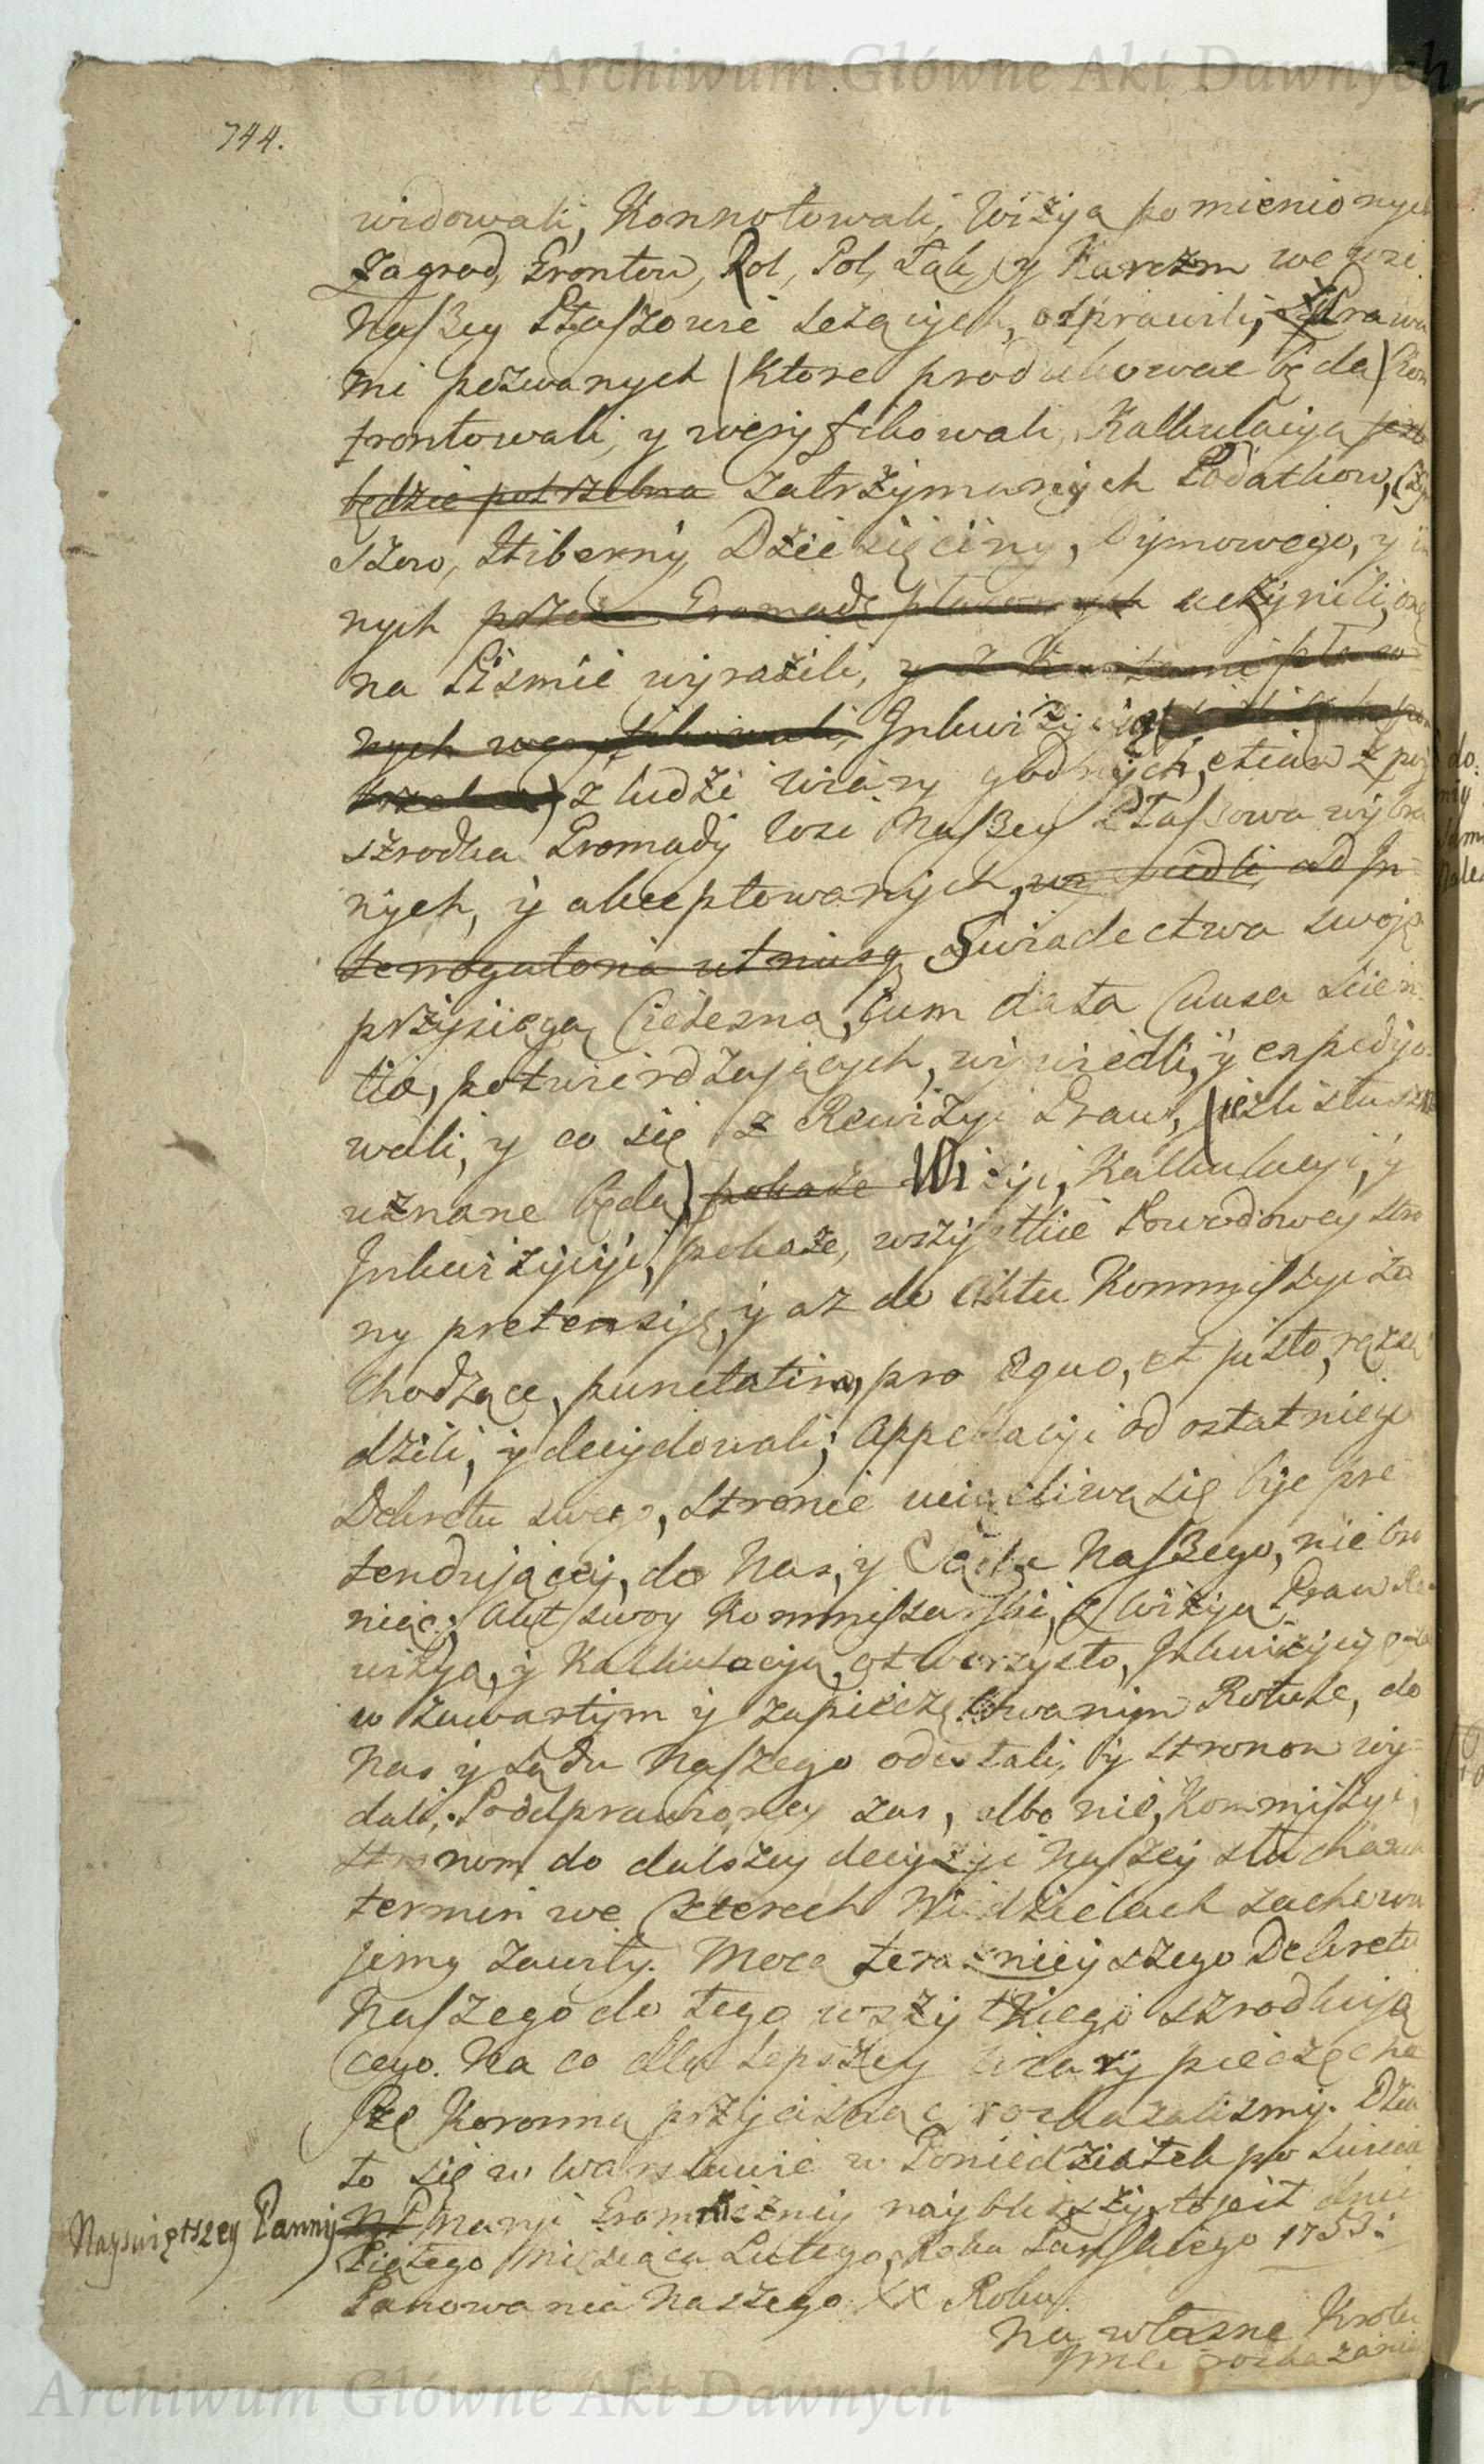 Archiwum Główne Akt Dawnych
744.
widowali, Konnotowali, Wizyą pomienionych
Zagrod, Grontow, Rol, Pol, Łąk, y Karczm we wsi
Naszey Staszowie leżących, odprawili, z Prawa
mi pozwanych (ktore produkowac będą) Kon
frontowali, y weryfikowali, Kalkulacyą jeżli
będzie potrzebna zatrzymanych Podatkow, Czyn
szow, Hiberny, Dziesięciny, Dymowego, y in
nych przez Gromadę uczynili, onę
na Pismie wyrazili, y z
nych weryfikowali, Inkwizycyą
z ludzi wiary godnych, etiam z po
szrodka Gromady wsi Naszey Staszowa wybra
nych, y akceptowanych, wywiedli, ad In
terrogatoria utriusq Swiadectwa swoje
przysięgą Cielesną, cum data Causa scien
tia, potwierdzających, wywiedli, y expedyo
wali, y co się z Rewizyi Praw, (jeżli słuszne
uznane będą) pokaże Wizyi, Kalkulacyi, y
Inkwizycyi, pokaże, wszystkie Powodowey stro
ny pretensye, y aż do Aktu Kommissyi za
chodzące, punctatim, pro aequo, et justo, rozsą
dzili, y decydowali; Appellacyi od ostatniego
Dekretu swego, stronie uciążliwą się byc pre
tendującey, do Nas, y Sądu Naszego, nie bro
niąc; Akt swoy Kommissarski, z Wizyą Praw Re
wizyą, y Kalkulacyą, otworzysto, Inkwizycyą zas
w zawartym y zapieczętowanym Rotule, do
Nas y Sądu Naszego odesłali, y stronom wy
dali; Po odprawioney zas, albo nie, Kommissyi,
stronom do dalszey decyzyi Naszey słuchania
termin we Czterech Niedzielach zachowu
jemy zawity. Mocą terazniejszego Dekretu
Naszego do tego wszystkiego szrodkują
cego. Na co dla lepszey wiary pieczęc Na
szę Koronną przycisnąc rozkazalismy. Dzia
to się w Warszawie w Poniedziałek po Swięcie
Nayswiętszey Panny NP Maryi Gromniczney naybliższy, to jest dnia
Piątego Miesiąca Lutego, Roku Panskiego 1753.
Panowania Naszego XX Roku.
Na własne Krola
Jmci rozkazanie
Archiwum Główne Akt Dawnych